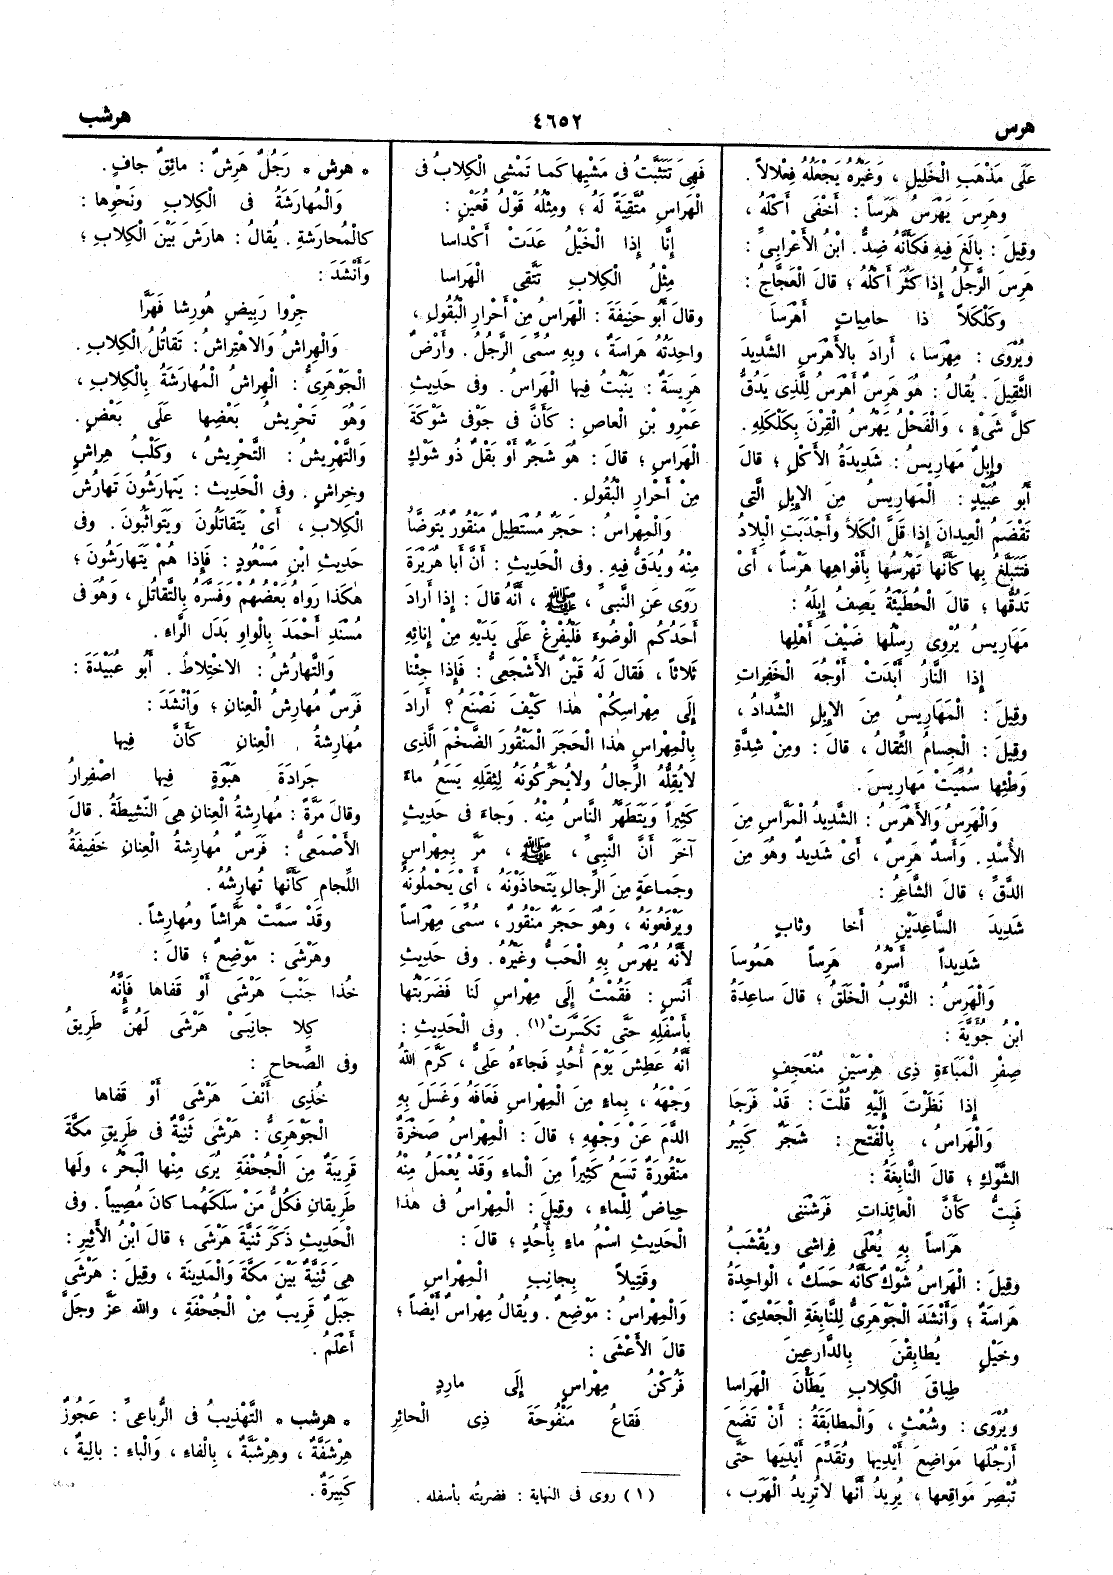 هرس
٤٦٥٢
هرشب
عَلَى مَذْهَبِ الْخَلِيلِ ، وَغَيْرُهُ يَجْعَلُهُ فِعْلالاً .
وهَرِسَ يَهْرَسُ هَرَساً : أَخْفَى أَكْلَهُ ،
وقِيلَ : بالَغَ فِيهِ فَكَأَنَّهُ ضِدٌّ . ابْنُ الأَعْرابِيِّ :
هَرِسَ الرَّجُلُ إِذا كَثُرَ أَكْلُهُ ؛ قالَ الْعَجَّاجُ :
وكَلْكَلاً ذا حامِياتٍ أَهْرَسَا
ويُرْوَى : مِهْرَسا ، أَرادَ بِالأَهْرَسِ الشَّدِيدَ
الثَّقِيلَ . يُقالُ : هُوَ هَرِسٌ أَهْرَسُ لِلَّذِى يَدُقُّ
كلَّ شَىْءٍ ، وَالْفَحْلُ يَهْرُسُ الْقِرْنَ بِكَلْكَلِهِ .
وإِبِلٌ مَهارِيسُ : شَدِيدَةُ الأَكْلِ ؛ قالَ
أَبُو عُبَيْدٍ : الْمَهارِيسُ مِنَ الإِبِلِ الَّتِى
تَقْضَمُ الْعِيدانَ إِذا قَلَّ الْكَلأُ وأَجْدَبَتِ الْبِلادُ
فَتَتَبَلَّغُ بِها كَأَنَّها تَهْرُسُها بِأَفْواهِها هَرْساً ، أَىْ
تَدُقُّها ؛ قالَ الْحُطَيْئَةُ يَصِفُ إِبِلَهُ :
مَهَارِيسُ يُرْوِى رِسْلُها ضَيْفَ أَهْلِها
إِذا النَّارُ أَبْدَتْ أَوْجُهَ الْخَفِراتِ
وقِيلَ : الْمَهَارِيسُ مِنَ الإِبِلِ الشِّدادُ ،
وقِيلَ : الْجِسامُ الثِّقالُ ، قالَ : ومِنْ شِدَّةِ
وَطْئِها سُمِّيَتْ مَهارِيسَ .
وَالْهَرِسُ وَالأَهْرَسُ : الشَّدِيدُ الْمَرَّاسِ مِنَ
الأُسْدِ . وَأَسَدٌ هَرِسٌ ، أَىْ شَدِيدٌ وهُوَ مِنَ
الدَّقِّ ؛ قالَ الشَّاعِرُ :
شَدِيدَ السَّاعِدَيْنِ أَخا وِثابٍ
شَدِيداً أَسْرُهُ هَرِساً هَمُوسَا
وَالْهَرِسُ : الثَّوْبُ الْخَلَقُ ؛ قالَ ساعِدَةُ
ابْنُ جُوَيَّةَ :
صِفْرِ الْمَبَاءَةِ ذِى هِرْسَيْنِ مُنْعَجِفٍ
إِذا نَظَرْتَ إِلَيْهِ قُلْتَ : قَدْ فَرَجَا
وَالْهَرَاسُ ، بِالْفَتْحِ : شَجَرٌ كَبِيرُ
الشَّوْكِ ؛ قالَ النَّابِغَةُ :
فَبِتُّ كَأَنَّ الْعائِذاتِ فَرَشْنَنِى
هَرَاساً بِهِ يُعْلَى فِراشِى ويُقْشَبُ
وقِيلَ : الْهَراسُ شَوْكٌ كَأَنَّهُ حَسَكٌ ، الْواحِدَةُ
هَراسَةٌ ؛ وَأَنْشَدَ الْجَوْهَرِىُّ لِلنَّابِغَةِ الْجَعْدِىِّ :
وخَيْلٍ يُطابِقْنَ بِالدَّارِعِينَ
طِباقَ الْكِلابِ يَطَأْنَ الْهَراسا
ويُرْوَى : وشُعْثٍ ، وَالْمطابَقَةُ : أَنْ تَضَعَ
أَرْجُلَها مَواضِعَ أَيْدِيها وتُقَدِّمَ أَيْدِيَها حَتَّى
تُبْصِرَ مَواقِعَها ، يُرِيدُ أَنَّها لاَتُرِيدُ الْهَرَبَ ،
فَهِىَ تَتَثَبَّتُ فى مَشْيِها كَما تَمْشِى الْكِلابُ فى
الْهَراسِ مُتَّقِيَةً لَهُ ؛ ومِثْلُهُ قَوْلُ قُعَيْنٍ :
إِنَّا إِذا الْخَيْلُ عَدَتْ أَكْداسا
مِثْلُ الْكِلابِ تَتَّقِى الْهَراسا
وقالَ أَبُو حَنِيفَةَ : الْهَراسُ مِنْ أَحْرارِ الْبُقُولِ ،
واحِدَتُهُ هَراسَةٌ ، وبِهِ سُمِّىَ الرَّجُلُ . وأَرْضٌ
هَرِيسَةٌ : يَنْبُتُ فِيها الْهَراسُ . وفى حَدِيثِ
عَمْرِو بْنِ الْعاصِ : كَأَنَّ فى جَوْفِى شَوْكَةَ
الْهَراسِ ؛ قالَ : هُوَ شَجَرٌ أَوْ بَقْلٌ ذُو شَوْكٍ
مِنْ أَحْرارِ الْبُقُولِ .
وَالْمِهْراسُ : حَجَرٌ مُسْتَطِيلٌ مَنْقُورٌ يُتَوَضَّأُ
مِنْهُ ويُدَقُّ فِيهِ . وفى الْحَدِيثِ : أَنَّ أَبا هُرَيْرَةَ
رَوَى عَنِ النَّبِىِّ ، ﷺ ، أَنَّهُ قالَ : إِذا أَرادَ
أَحَدُكُمِ الْوُضُوءَ فَلْيُفْرِغْ عَلَى يَدَيْهِ مِنْ إِنائِهِ
ثَلاثاً ، فَقالَ لَهُ قَيْنٌ الأَشْجَعِىُّ : فَإِذا جِئْنا
إِلَى مِهْراسِكُمْ هٰذا كَيْفَ نَصْنَعُ ؟ أَرادَ
بِالْمِهْراسِ هٰذا الْحَجَرَ الْمَنْقُورَ الضَّخْمَ الَّذِى
لاَيُقِلُّهُ الرِّجالُ ولاَيُحَرِّكُونَهُ لِثِقَلِهِ يَسَعُ ماءً
كَثِيراً وَيَتَطَهَّرُ النَّاسُ مِنْهُ . وَجاءَ فى حَدِيثٍ
آخَرَ أَنَّ النَّبِىَّ ، ﷺ ، مَرَّ بِمِهْراسٍ
وجَماعَةٍ مِنَ الرِّجالِ يَتَحاذَوْنَهُ ، أَىْ يَحْمِلُونَهُ
ويَرْفَعُونَهُ ، وهُوَ حَجَرٌ مَنْقُورٌ ، سُمِّىَ مِهْراساً
لأَنَّهُ يُهْرَسُ بِهِ الْحَبُّ وغَيْرُهُ . وفى حَدِيثِ
أَنَسٍ : فَقُمْتُ إِلَى مِهْراسٍ لَنا فَضَرَبْتُها
بِأَسْفَلِهِ حَتَّى تَكَسَّرَتْ(١) . وفى الْحَدِيثِ :
أَنَّهُ عَطِشَ يَوْمَ أُحُدٍ فَجاءَهُ عَلِىٌّ ، كَرَّمَ اللهُ
وَجْهَهُ ، بِماءٍ مِنَ الْمِهْراسِ فَعَافَهُ وغَسَلَ بِهِ
الدَّمَ عَنْ وَجْهِهِ ؛ قالَ : الْمِهْراسُ صَخْرَةٌ
مَنْقُورَةٌ تَسَعُ كَثِيراً مِنَ الْماءِ وَقَدْ يُعْمَلُ مِنْهُ
حِياضٌ لِلْماءِ ، وقِيلَ : الْمِهْراسُ فى هٰذا
الْحَدِيثِ اسْمُ ماءٍ بِأُحُدٍ ؛ قالَ :
وقَتِيلاً بِجانِبِ الْمِهْراسِ
وَالْمِهْراسُ : مَوْضِعٌ . ويُقالُ مِهْراسٌ أَيْضاً ؛
قالَ الأَعْشَى :
فَرُكْنُ مِهْراسٍ إِلَى مارِدٍ
فَقاعُ مَنْفُوحَةَ ذِى الْحائِرِ
(١) روى فى النهاية : فضربتُه بأسفله .
• هرش • رَجُلٌ هَرِشٌ : مائِقٌ جافٍ .
وَالْمُهارَشَةُ فى الْكِلابِ ونَحْوِها :
كالْمُحارَشَةِ . يُقالُ : هارَشَ بَيْنَ الْكِلابِ ؛
وَأَنْشَدَ :
جِرْوا رَبِيضٍ هُورِشا فَهَرَّا
وَالْهِراشُ وَالاهْتِراشُ : تَقاتُلُ الْكِلابِ .
الْجَوْهَرِىُّ : الْهِراشُ الْمُهارَشَةُ بِالْكِلابِ ،
وَهُوَ تَحْرِيشُ بَعْضِها عَلَى بَعْضٍ .
وَالتَّهْرِيشُ : التَّحْرِيشُ ، وكَلْبُ هِراشٍ
وخِراشٍ . وفى الْحَدِيثِ : يَتَهارَشُونَ تَهارُشَ
الْكِلابِ ، أَىْ يَتَقاتَلُونَ ويَتَواثَبُونَ . وفى
حَدِيثِ ابْنِ مَسْعُودٍ : فَإِذا هُمْ يَتَهارَشُونَ ؛
هٰكَذا رَواهُ بَعْضُهُمْ وَفَسَّرَهُ بِالتَّقاتُلِ ، وهُوَ فى
مُسْنَدِ أَحْمَدَ بِالْواوِ بَدَلَ الرَّاءِ .
وَالتَّهارُشُ : الاخْتِلاطُ . أَبُو عُبَيْدَةَ :
فَرَسٌ مُهارِشُ الْعِنانِ ؛ وَأَنْشَدَ :
مُهارِشَةُ الْعِنانِ كَأَنَّ فِيها
جَرادَةَ هَبْوَةٍ فِيها اصْفِرارُ
وقالَ مَرَّةً : مُهارِشَةُ الْعِنانِ هِىَ النَّشِيطَةُ . قالَ
الأَصْمَعِىُّ : فَرَسٌ مُهارِشَةُ الْعِنانِ خَفِيفَةُ
اللِّجامِ كَأَنَّها تُهارِشُهُ .
وقَدْ سَمَّتْ هَرَّاشاً ومُهارِشاً .
وهَرْشَى : مَوْضِعٌ ؛ قالَ :
خُذا جَنْبَ هَرْشَى أَوْ قَفاها فَإِنَّهُ
كِلا جانِبَىْ هَرْشَى لَهُنَّ طَرِيقُ
وفى الصِّحاحِ :
خُذِى أَنْفَ هَرْشَى أَوْ قَفاها
الْجَوْهَرِىُّ : هَرْشَى ثَنِيَّةٌ فى طَرِيقِ مَكَّةَ
قَرِيبَةٌ مِنَ الْجُحْفَةِ يُرَى مِنْها الْبَحْرُ ، ولَها
طَرِيقانِ فَكُلُّ مَنْ سَلَكَهُما كانَ مُصِيباً . وفى
الْحَدِيثِ ذَكَرَ ثَنِيَّةَ هَرْشَى ؛ قالَ ابْنُ الأَثِيرِ :
هِىَ ثَنِيَّةٌ بَيْنَ مَكَّةَ وَالْمَدِينَةِ ، وقِيلَ : هَرْشَى
جَبَلٌ قَرِيبٌ مِنْ الْجُحْفَةِ ، والله عَزَّ وجَلَّ
أَعْلَمُ .
• هرشب • التَّهْذِيبُ فى الرُّباعِىِّ : عَجُوزٌ
هِرْشَفَّةٌ ، وهِرْشَبَّةٌ ، بِالْفاءِ ، وَالْباءِ : بالِيةٌ ،
كَبِيرَةٌ .